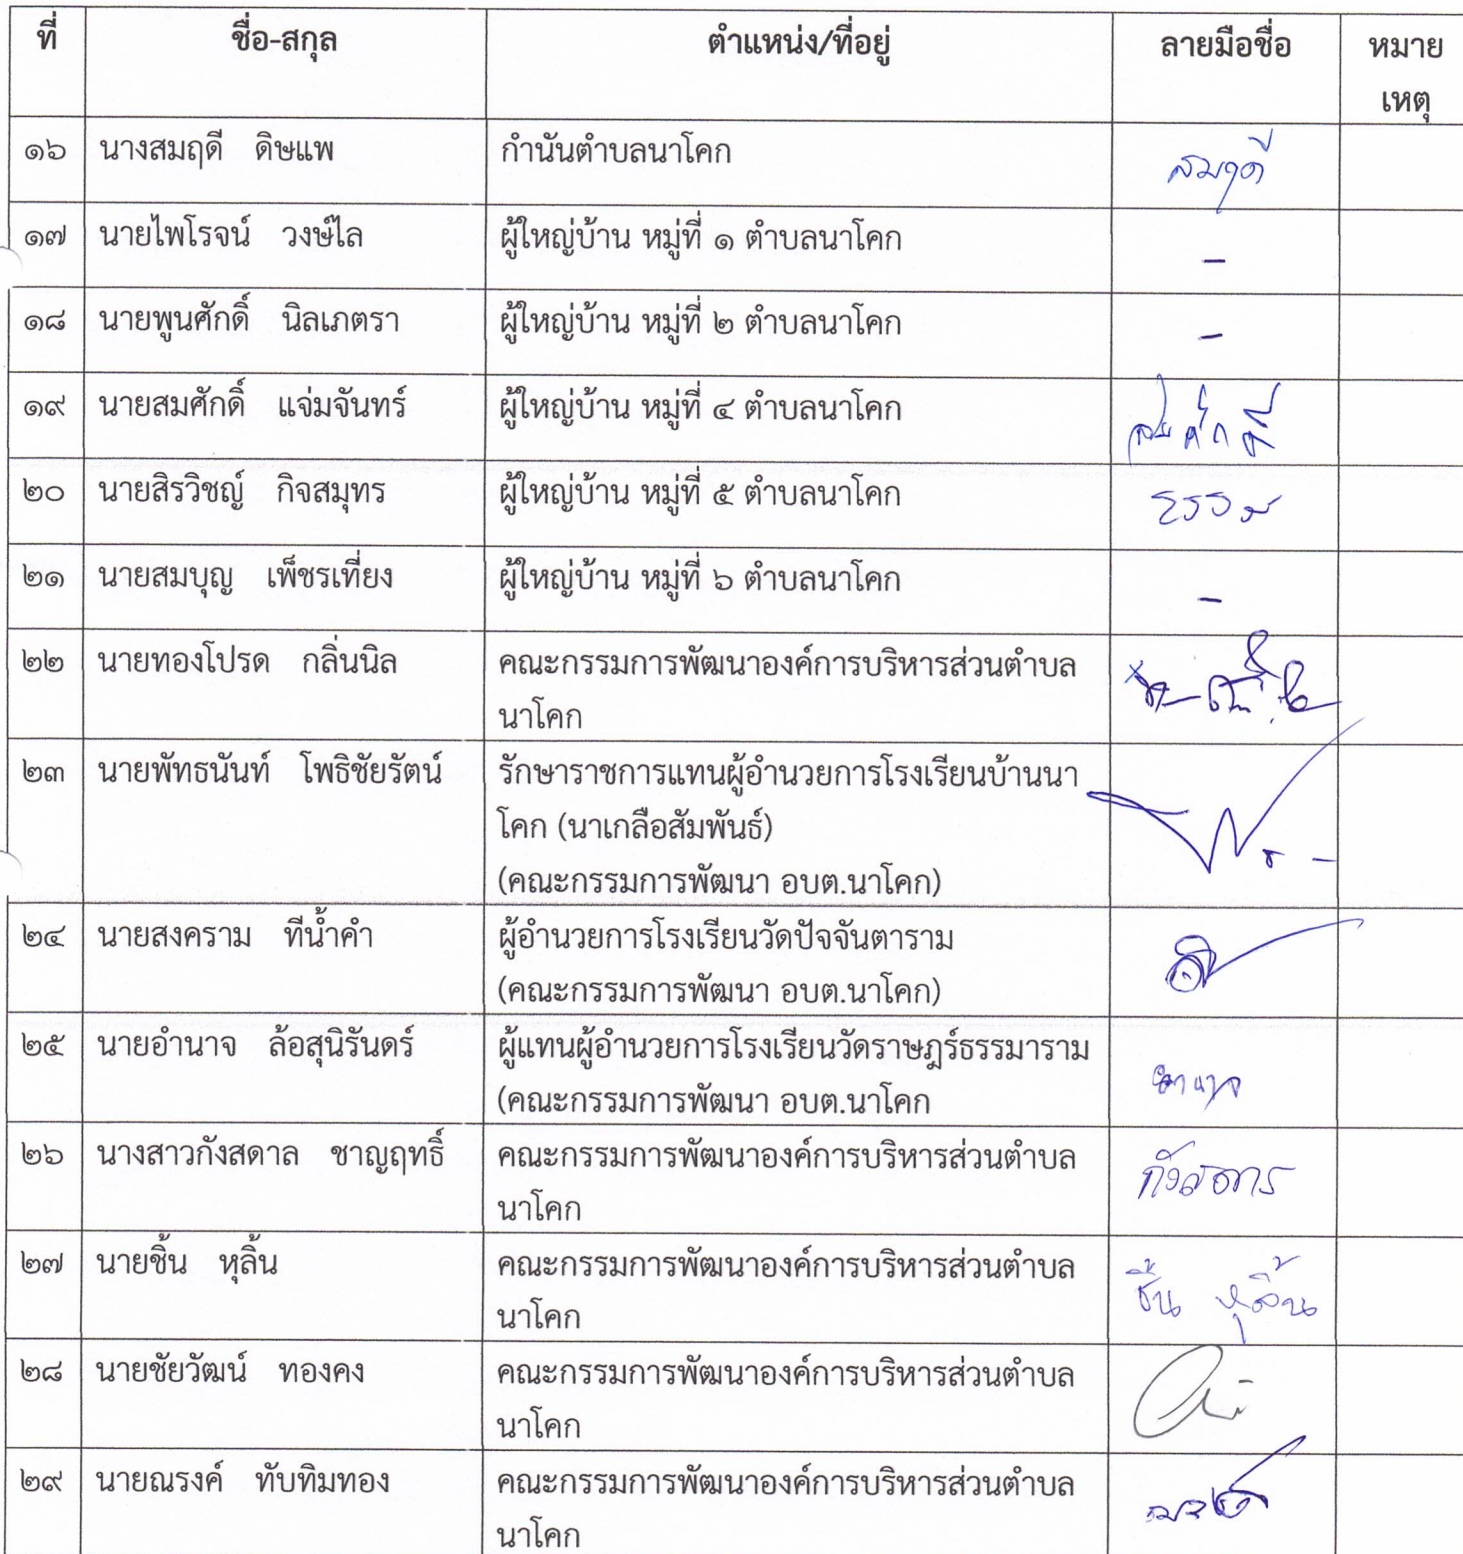 ที่ ชื่อ-สกุล ตำแหน่ง/ที่อยู่ ลายมือชื่อ หมาย
เหตุ
๑๖ นางสมฤดี ดิษแพ กำนันตำบลนาโคก สมฤดี
๑๗ นายไพโรจน์ วงษ์ไล ผู้ใหญ่บ้าน หมู่ที่ ๑ ตำบลนาโคก -
๑๘ นายพูนศักดิ์ นิลเภตรา ผู้ใหญ่บ้าน หมู่ที่ ๒ ตำบลนาโคก -
๑๙ นายสมศักดิ์ แจ่มจันทร์ ผู้ใหญ่บ้าน หมู่ที่ ๔ ตำบลนาโคก สมศักดิ์
๒๐ นายสิรวิชญ์ กิจสมุทร ผู้ใหญ่บ้าน หมู่ที่ ๕ ตำบลนาโคก
๒๑ นายสมบุญ เพ็ชรเที่ยง ผู้ใหญ่บ้าน หมู่ที่ ๖ ตำบลนาโคก -
๒๒ นายทองโปรด กลิ่นนิล คณะกรรมการพัฒนาองค์การบริหารส่วนตำบล
นาโคก
๒๓ นายพัทธนันท์ โพธิชัยรัตน์ รักษาราชการแทนผู้อำนวยการโรงเรียนบ้านนา
โคก (นาเกลือสัมพันธ์)
(คณะกรรมการพัฒนา อบต.นาโคก)
๒๔ นายสงคราม ทีน้ำคำ ผู้อำนวยการโรงเรียนวัดปัจจันตาราม
(คณะกรรมการพัฒนา อบต.นาโคก)
๒๕ นายอำนาจ ล้อสุนิรันดร์ ผู้แทนผู้อำนวยการโรงเรียนวัดราษฎร์ธรรมาราม
(คณะกรรมการพัฒนา อบต.นาโคก อำนาจ
๒๖ นางสาวกังสดาล ชาญฤทธิ์ คณะกรรมการพัฒนาองค์การบริหารส่วนตำบล
นาโคก
๒๗ นายชิ้น หุลิ้น คณะกรรมการพัฒนาองค์การบริหารส่วนตำบล ชิ้น หุลิ้น
นาโคก
๒๘ นายชัยวัฒน์ ทองคง คณะกรรมการพัฒนาองค์การบริหารส่วนตำบล
นาโคก
๒๙ นายณรงค์ ทับทิมทอง คณะกรรมการพัฒนาองค์การบริหารส่วนตำบล
นาโคก